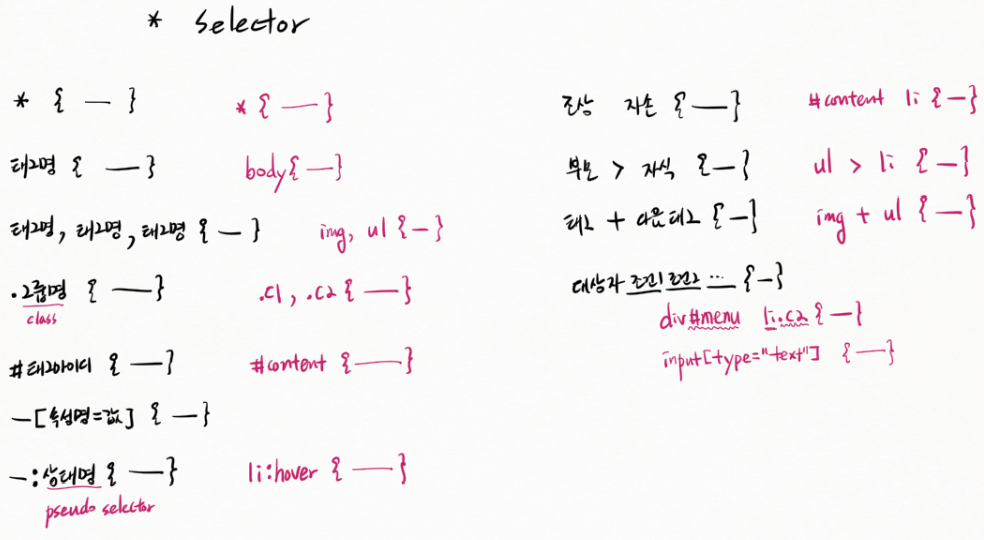 * Selector
* { — } * { — }
태그명 { — } body { — }
태그명, 태그명, 태그명 { — } img, ul { — }
.그룹명 { — } .c1, .c2 { — }
class
#태그아이디 { — } #content { — }
—[속성명=값] { — }
—:상태명 { — } li:hover { — }
pseudo selector
조상 자손 { — } #content li { — }
부모 > 자식 { — } ul > li { — }
태그 + 다음태그 { — } img + ul { — }
대상자 조건1 조건2 ... { — }
div#menu li.c2 { — }
input[type="text"] { — }